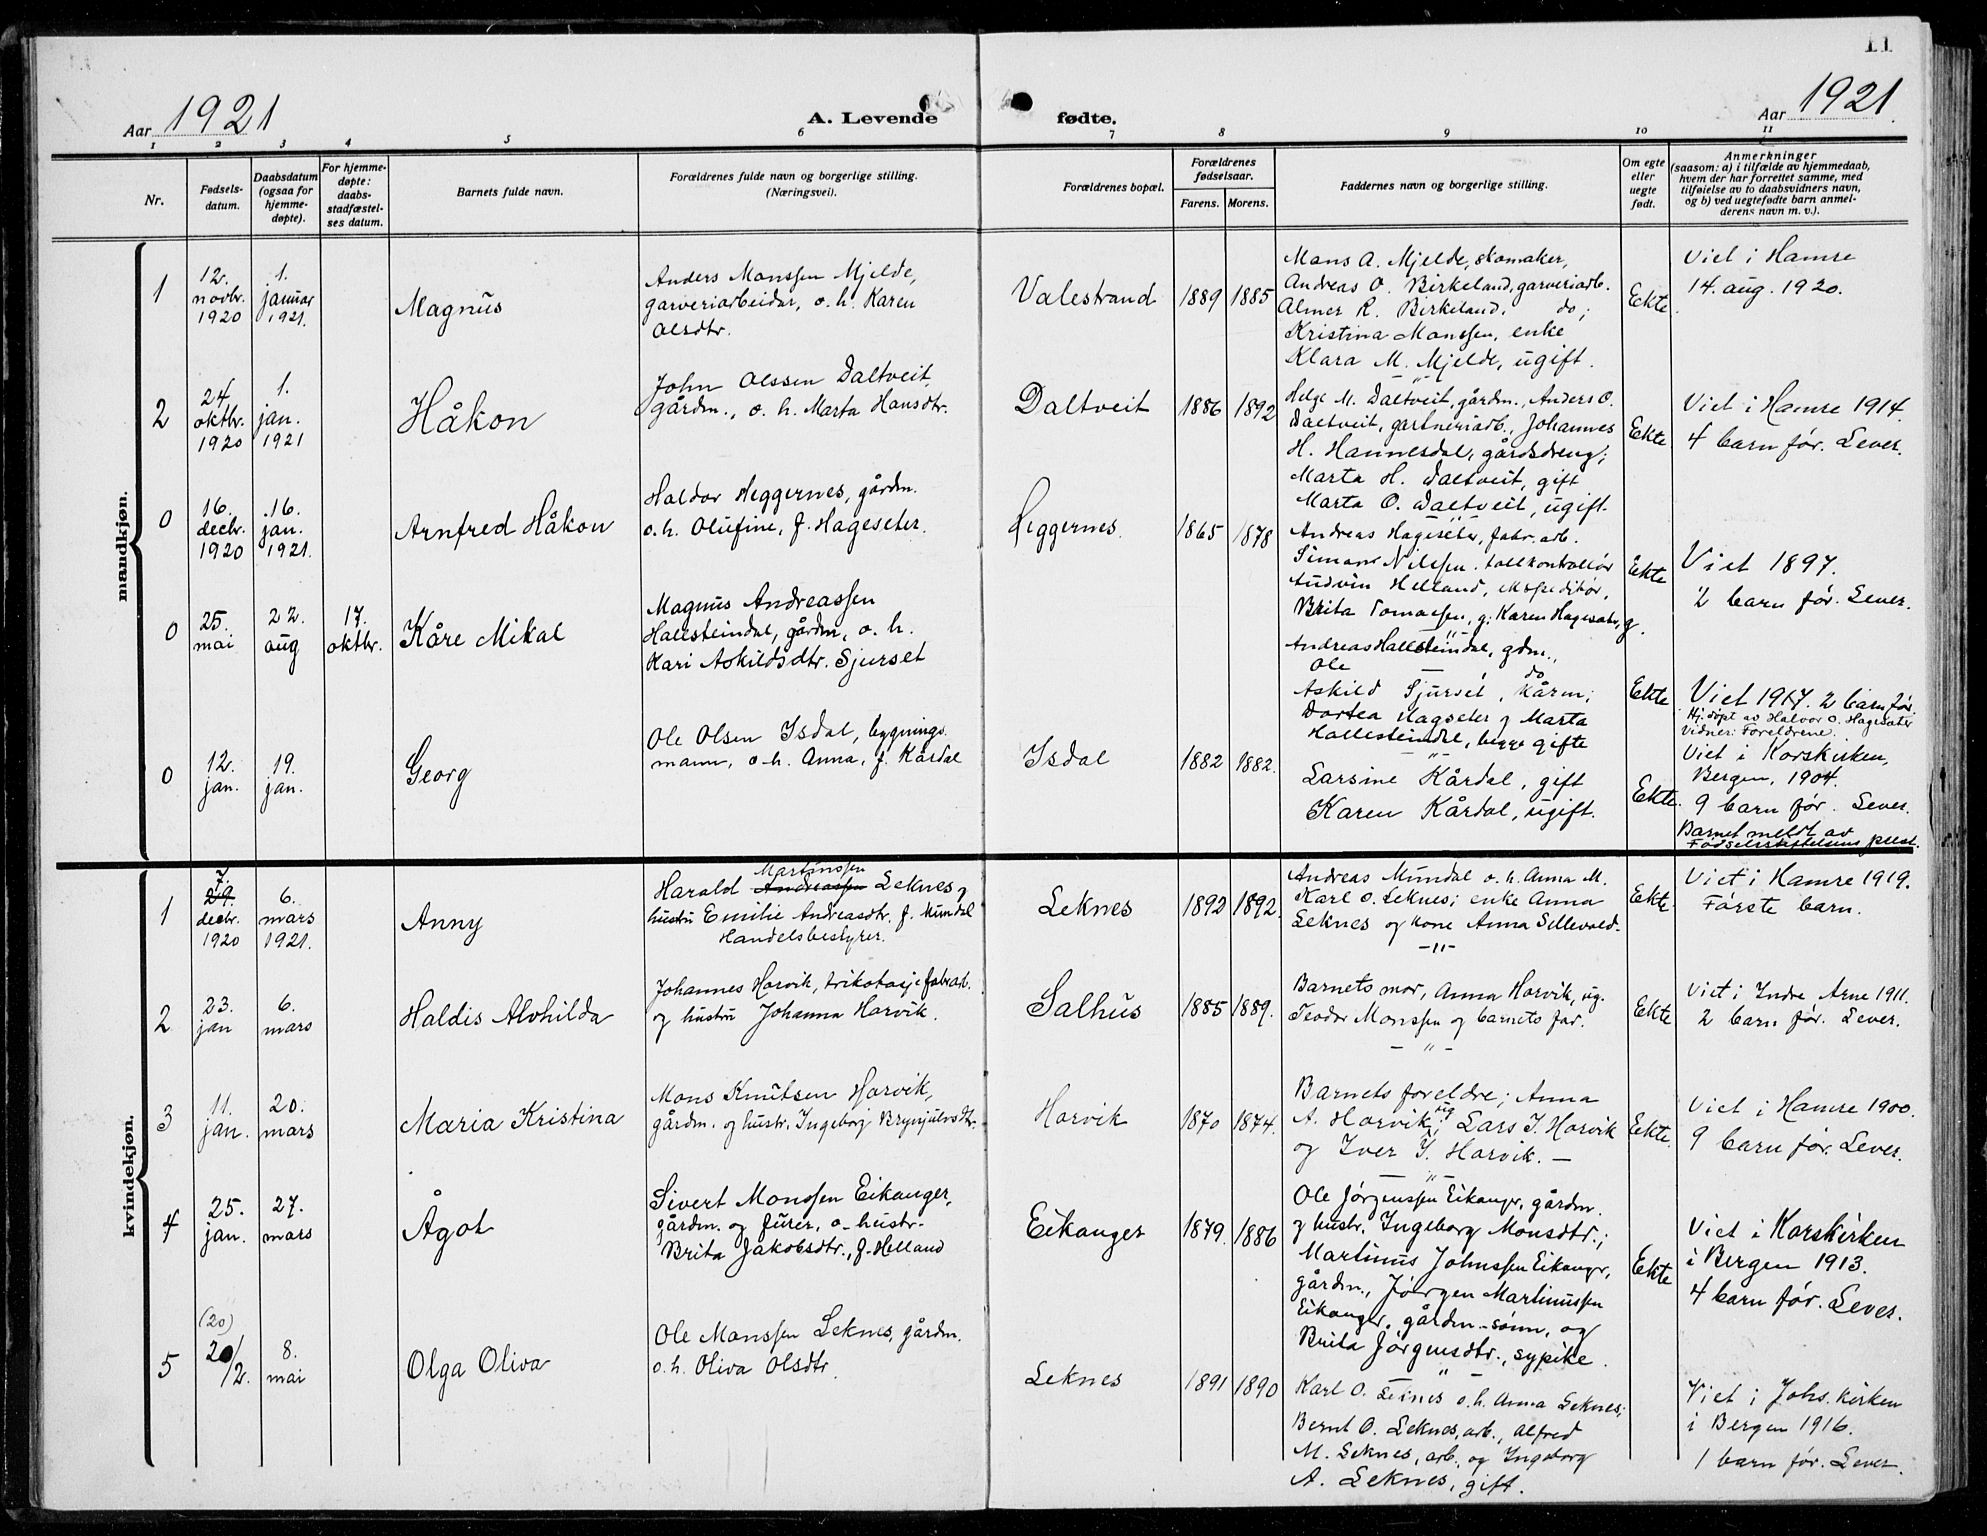 11
Aar 1921
A. Levende fødte.
Aar 1921.
1 2 3 4 5 6 7 8 9 10 11
Nr.
Fødsels-
datum.
Daabsdatum
(ogsaa for
hjemme-
døpte).
For hjemme-
døpte:
daabs-
stadfæstel-
ses datum.
Barnets fulde navn.
Forældrenes fulde navn og borgerlige stilling.
(Næringsvei).
Forældrenes bopæl.
Forældrenes
fødselsaar.
Farens. Morens.
Faddernes navn og borgerlige stilling.
Om egte
eller
uegte
født.
Anmerkninger
(saasom: a) i tilfælde av hjemmedaab,
hvem der har forrettet samme, med
tilføielse av to daabsvidners navn,
og b) ved uegtefødte barn anmel-
derens navn m. v.).
mandkjøn.
1
12.
novbr.
1920
1.
januar
1921.
Magnus
Anders Monssen Mjelde,
garveriarbeider, o. h. Karen
Olsdtr.
Valestrand
1889 1885
Mons A. Mjelde, skomaker,
Andreas O. Birkeland, garveriarb.
Almer R. Birkeland, do;
Kristina Monssen, enke
Klara M. Mjelde, ugift.
Ekte
Viet i Hamre
14. aug. 1920.
2
24.
oktbr.
1920
1.
jan.
1921
Håkon
John Olssen Daltveit,
gårdm., o. h. Marta Hansdtr.
Daltveit
1886 1892
Helge M. Daltveit, gårdm., Anders O.
Daltveit, gartneriarb., Johannes
H. Hannesdal, gårdsdreng;
Marta H. Daltveit, gift
Marta O. Daltveit, ugift.
Ekte
Viet i Hamre 1914.
4 barn før. Lever.
0
16.
decbr.
1920
16.
jan.
1921.
Arnfred Håkon
Haldor Heggernes, gårdm.
o. h. Olufine, f. Hageseter.
Heggernes.
1865 1878
Andreas Hageseter, fabr. arb.
Simon Nilssen, tollkontrollør
Audvin Helland, ekspeditør,
Brita Tomassen, g. Karen Hageseter, g.
Ekte
Viet 1897.
2 barn før. Lever.
0
25.
mai
22.
aug
17.
oktbr.
Kåre Mikal
Magnus Andreassen
Hallesteindal, gårdm, o. h.
Kari Askildsdtr. Sjurset
Andreas Hallesteindal, gdm.,
Ole — do
Askild Sjurset, kårm;
Dortea Hagseter g Marta
Hallesteindal, begge gifte
Ekte
Viet 1917. 2 barn før.
Hj. døpt av Halvor O. Hageseter
Vidner: Foreldrene.
0
12.
jan.
19.
jan.
Georg
Ole Olsen Isdal, bygnings-
mann, o. h. Anna, f. Kårdal
Isdal
1882 1882.
Larsine Kårdal, gift
Karen Kårdal, ugift.
Ekte.
Viet i Korskirken,
Bergen, 1904.
9 barn før. Lever.
Barnet meldt av
Fødselsstiftelsens prest.
kvindekjøn.
1
7.
29.
decbr.
1920
6.
mars
1921.
Anny
Martinssen
Harald Andreassen Leknes g
hustru Emilie Andreasdtr. f. Mundal
Handelsbestyrer.
Leknes
1892 1892.
Andreas Mundal o. h. Anna M.
Karl O. Leknes; enke Anna
Leknes og kone Anna Sellevold.
—"—
Ekte.
Viet i Hamre 1919.
Første barn.
2
23.
jan
6.
mars
Haldis Alvhilda
Johannes Horvik, trikotasjefabrarb.
og hustru Johanna Horvik.
Salhus
1885 1889.
Barnets mor, Anna Horvik, ug.
Teodor Monssen og barnets far.
—"—
Ekte
Viet i Indre Arne 1911.
2 barn før. Lever.
3
11.
jan.
20.
mars
Maria Kristina
Mons Knutsen Horvik,
gårdm. og hustr. Ingeborg Brynjulvsdtr.
Horvik
1870 1874.
Barnets foreldre; Anna
A. Horvik, ug Lars I. Horvik
og Iver I. Horvik. —
Eekte.
Viet i Hamre 1900.
9 barn før. Lever.
4
25.
jan.
27.
mars
Ågot
Sivert Monssen Eikanger,
gårdm. og furer, o hustr.
Brita Jakobsdtr., f. Helland
Eikanger
1879. 1886
Ole Jørgenssen Eikanger, gårdm.
g hustr. Ingeborg Monsdtr.;
Martinus Johnssen Eikanger,
gårdm., Jørgen Martinussen
Eikanger, gårdm-sønn, og
Brita Jørgensdtr., sypike.
Ekte
Viet i Korskirken
i Bergen 1913.
4 barn før. Lever.
5
(20)
20/2.
8.
mai
Olga Oliva
Ole Monssen Leknes, gårdm.
o. h. Oliva Olsdtr.
Leknes
1891 1890
Karl O. Leknes o. h. Anna Leknes;
Bernt O. Leknes, arb., Alfred
M. Leknes, arb., og Ingeborg
A. Leknes, gift.
Viet i Johs. kirken
i Bergen 1916.
1 barn før. Lever.